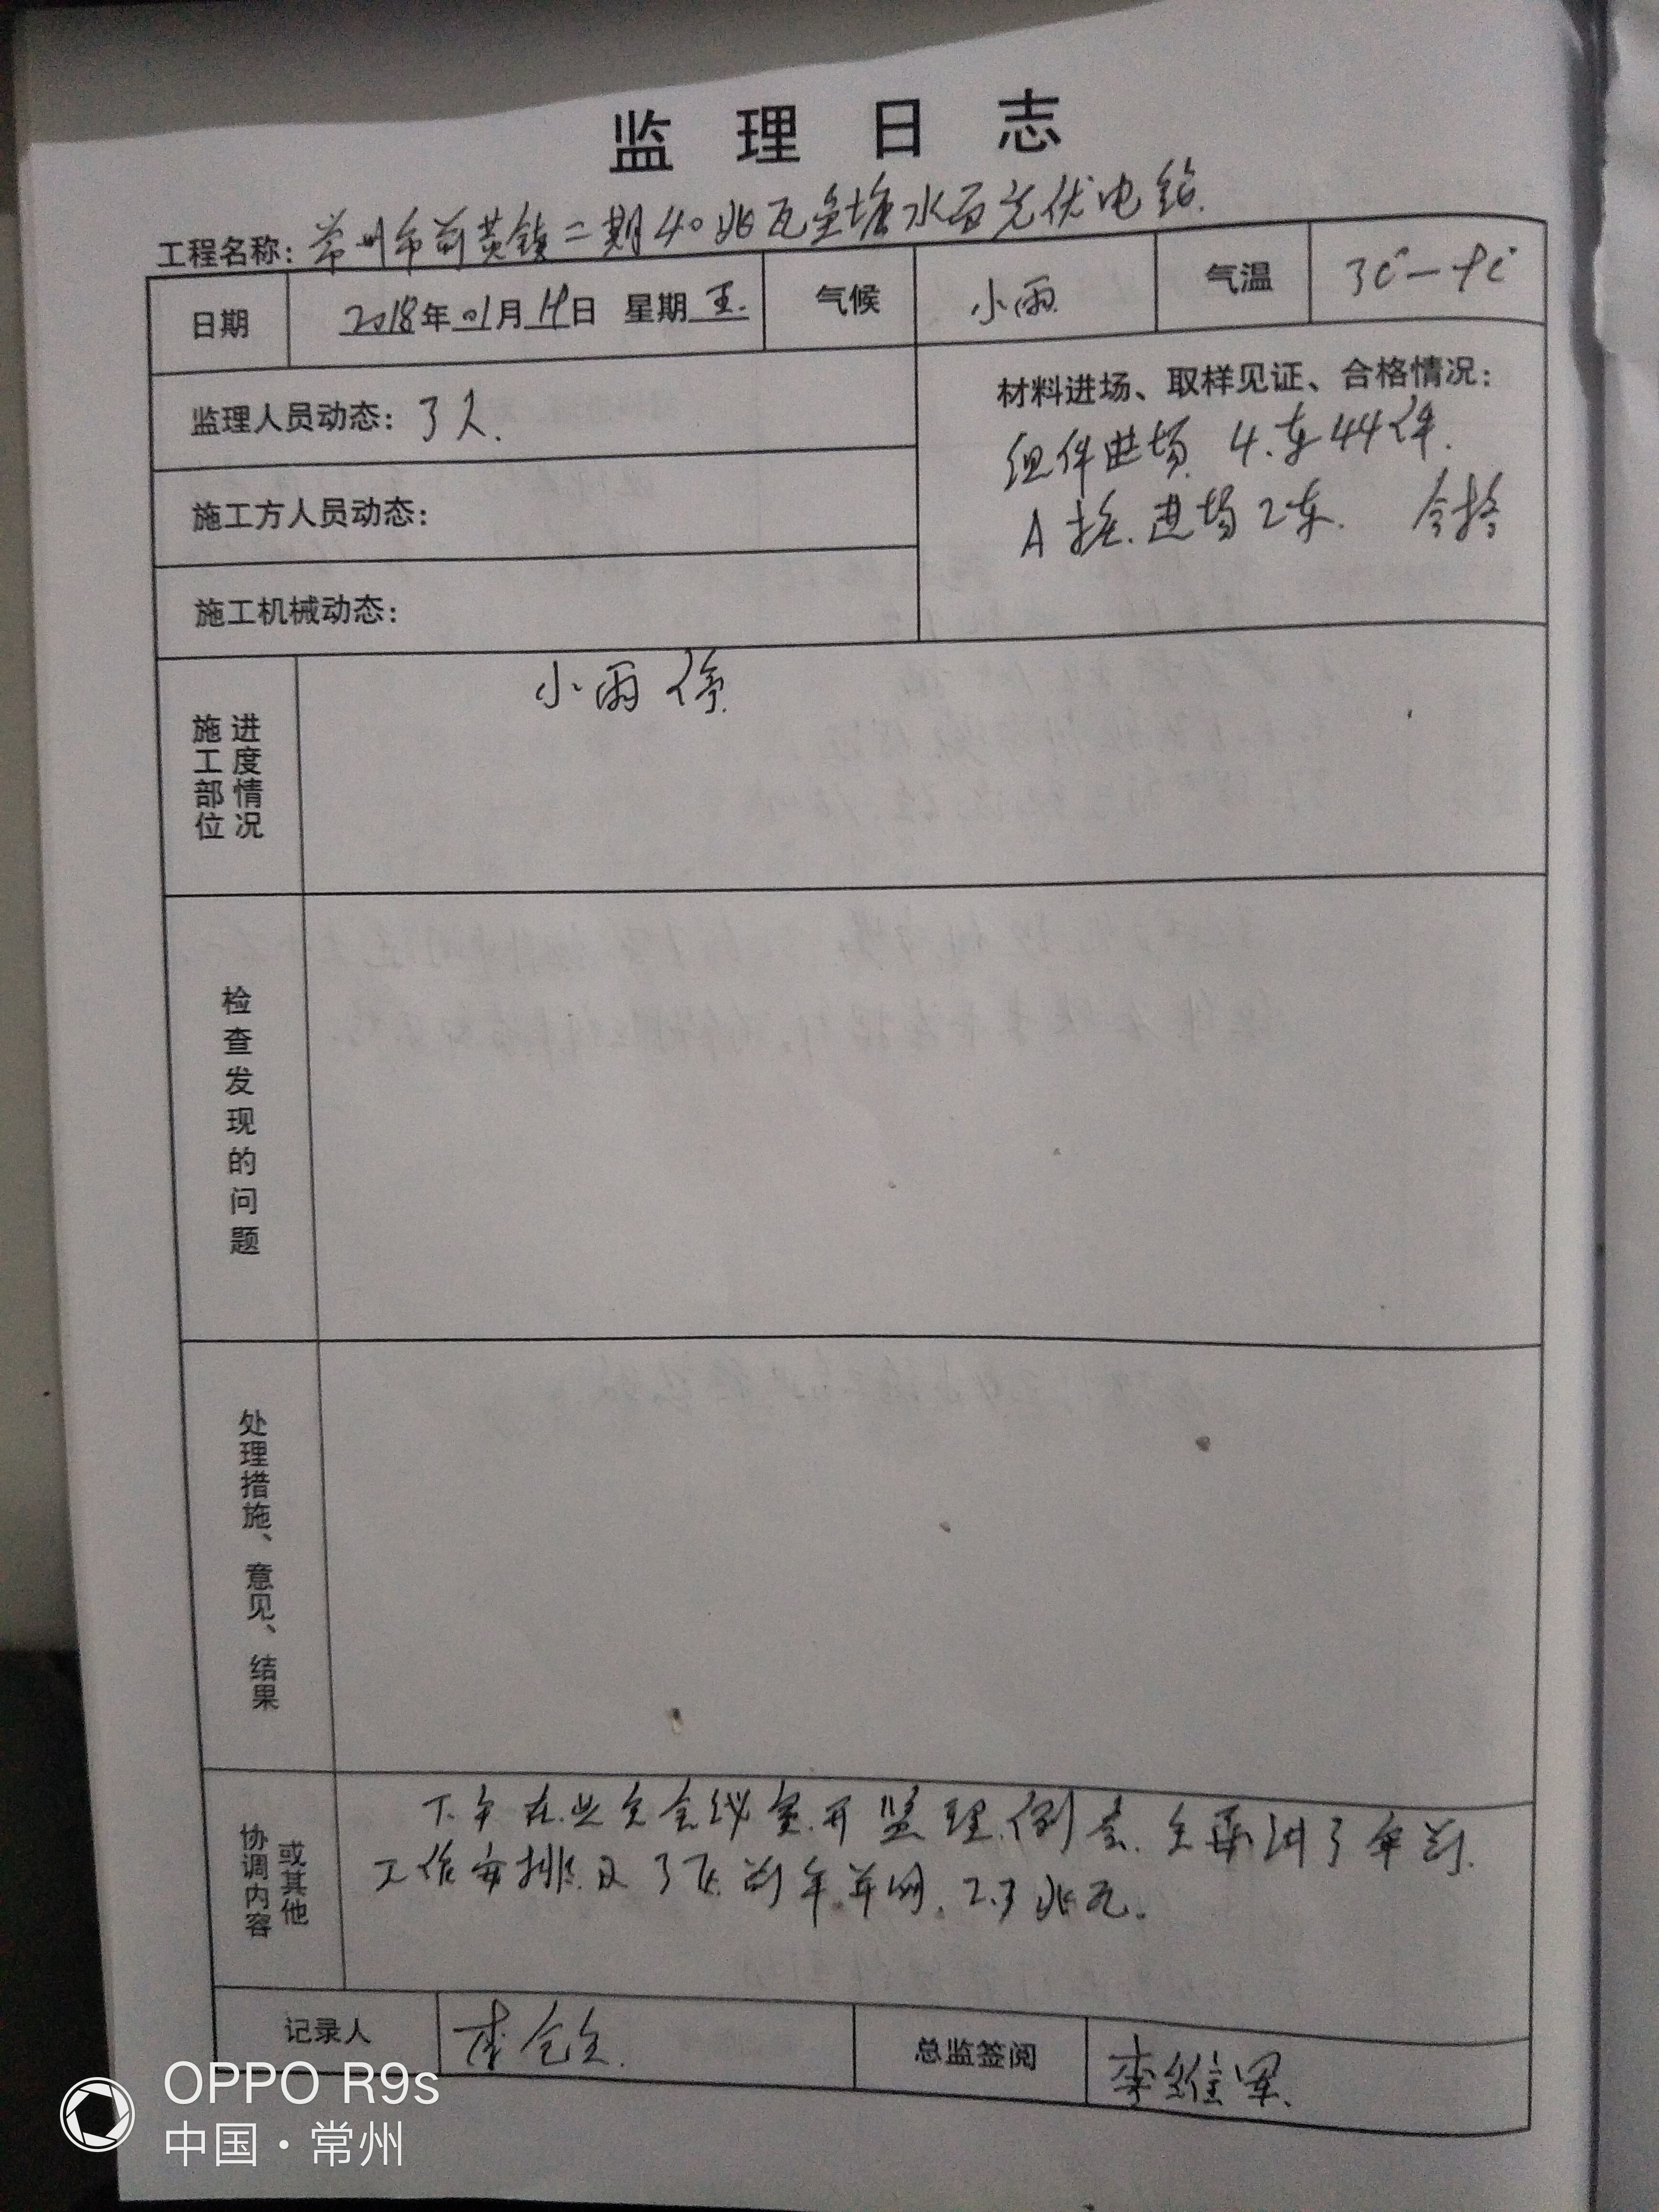 监理日志
工程名称：常州市前黄镇二期40兆瓦鱼塘水面光伏电站.
日期 2018年01月19日 星期五. 气候 小雨 气温 3℃—9℃
监理人员动态：3人.
材料进场、取样见证、合格情况：
组件进场 4车44件.
A桩.进场2车. 合格
施工方人员动态：
施工机械动态：
施工部位
进度情况
小雨停.
检查发现的问题
处理措施、意见、结果
协调内容
或其他
下午在业主会议室开监理例会.主要讲了年前.
工作安排.及 年前并网.2.3兆瓦.
记录人 李 总监签阅 李维军.
OPPO R9s
中国·常州